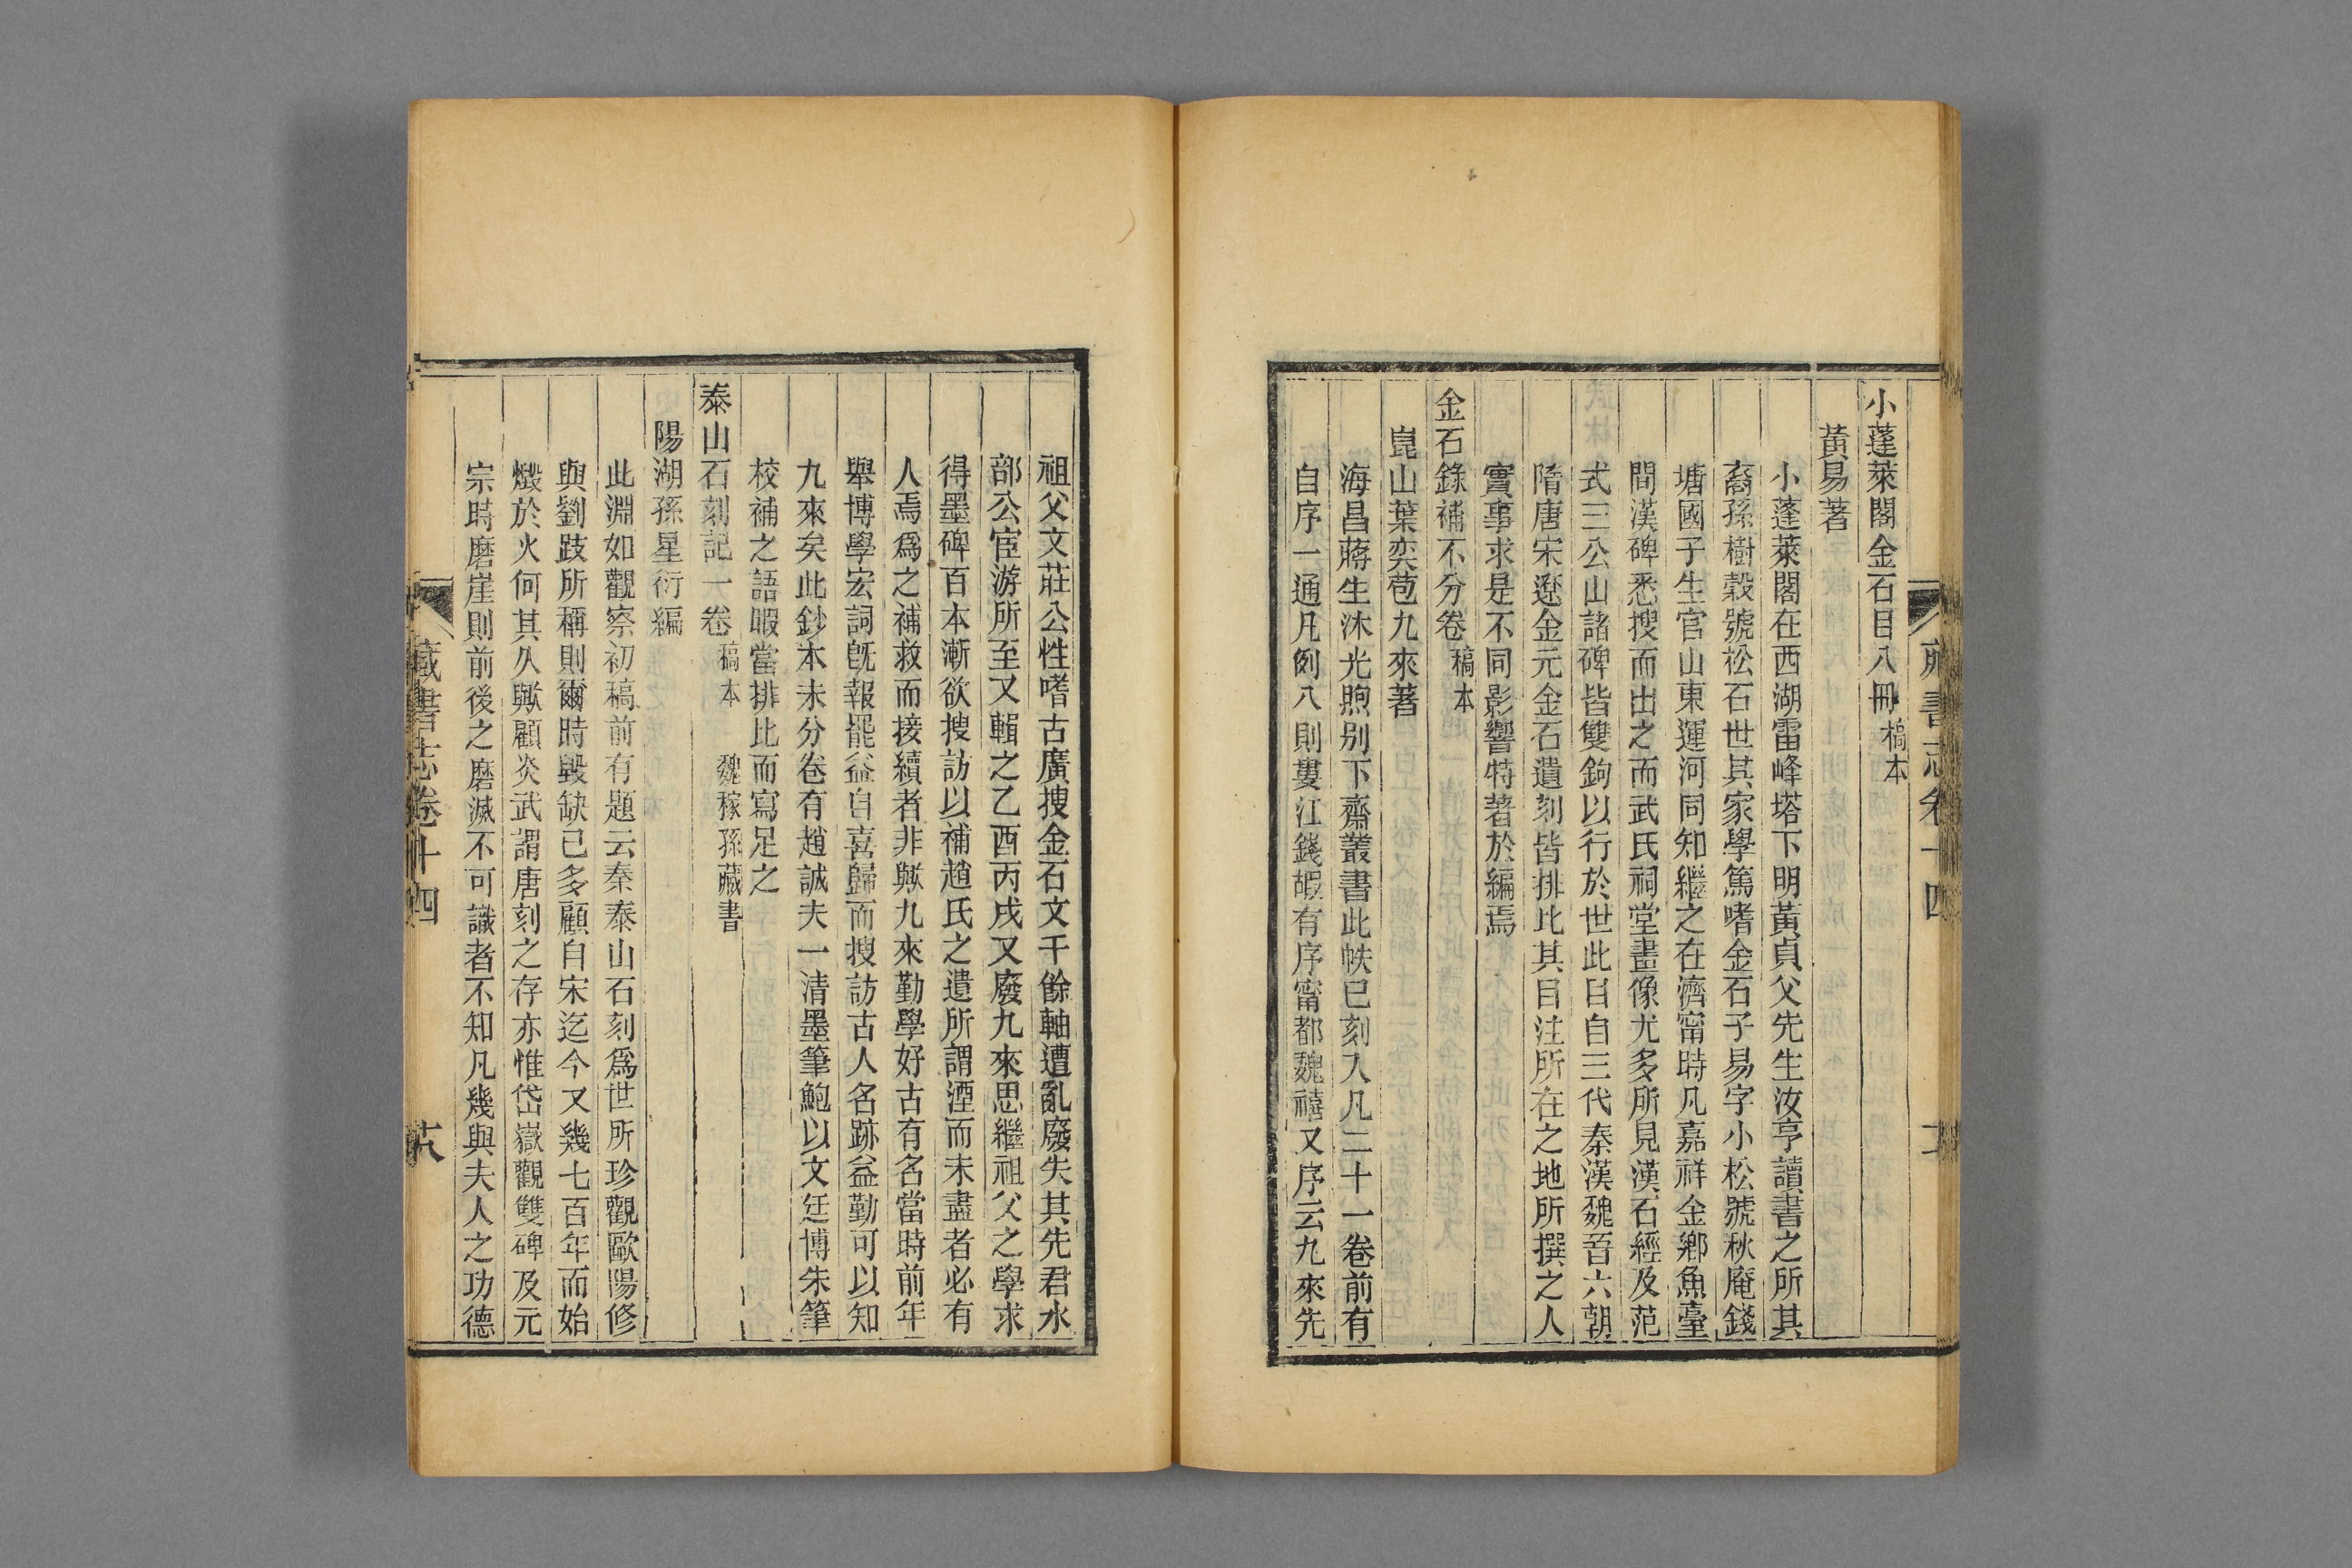 小蓬萊閣金石目八冊 稿本
黃易著
小蓬萊閣在西湖雷峰塔下明黃貞父先生汝亨讀書之所其
裔孫樹穀號松石世其家學篤嗜金石子易字小松號秋庵錢
塘國子生官山東運河同知繼之在濟甯時凡嘉祥金鄉魚臺
間漢碑悉搜而出之而武氏祠堂畫像尤多所見漢石經及范
式三公山諸碑皆雙鉤以行於世此目自三代秦漢魏晉六朝
隋唐宋遼金元金石遺刻皆排比其目注所在之地所撰之人
實事求是不同影響特著於編焉
金石錄補不分卷 稿本
崑山葉奕苞九來著
海昌蔣生沐光煦別下齋叢書此帙已刻入凡二十一卷前有
自序一通凡例八則婁江錢嘏有序甯都魏禧又序云九來先
祖父文莊公性嗜古廣搜金石文千餘軸遭亂廢失其先君水
部公宦游所至又輯之乙酉丙戌又廢九來思繼祖父之學求
得墨碑百本漸欲搜訪以補趙氏之遺所謂湮而未盡者必有
人焉爲之補救而接續者非歟九來勤學好古有名當時前年
舉博學宏詞既報罷益自喜歸而搜訪古人名跡益勤可以知
九來矣此鈔本未分卷有趙誠夫一清墨筆鮑以文廷博朱筆
校補之語暇當排比而寫足之
泰山石刻記一卷 稿本 魏稼孫藏書
陽湖孫星衍編
此淵如觀察初稿前有題云秦泰山石刻爲世所珍觀歐陽修
與劉跂所稱則爾時毀缺已多顧自宋迄今又幾七百年而始
燬於火何其久歟顧炎武謂唐刻之存亦惟岱嶽觀雙碑及元
宗時磨崖則前後之磨滅不可識者不知凡幾與夫人之功德
藏書志卷十四